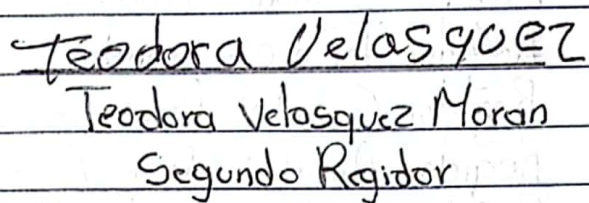 Teodora Velasquez
Teodora Velasquez Moran
Segundo Regidor